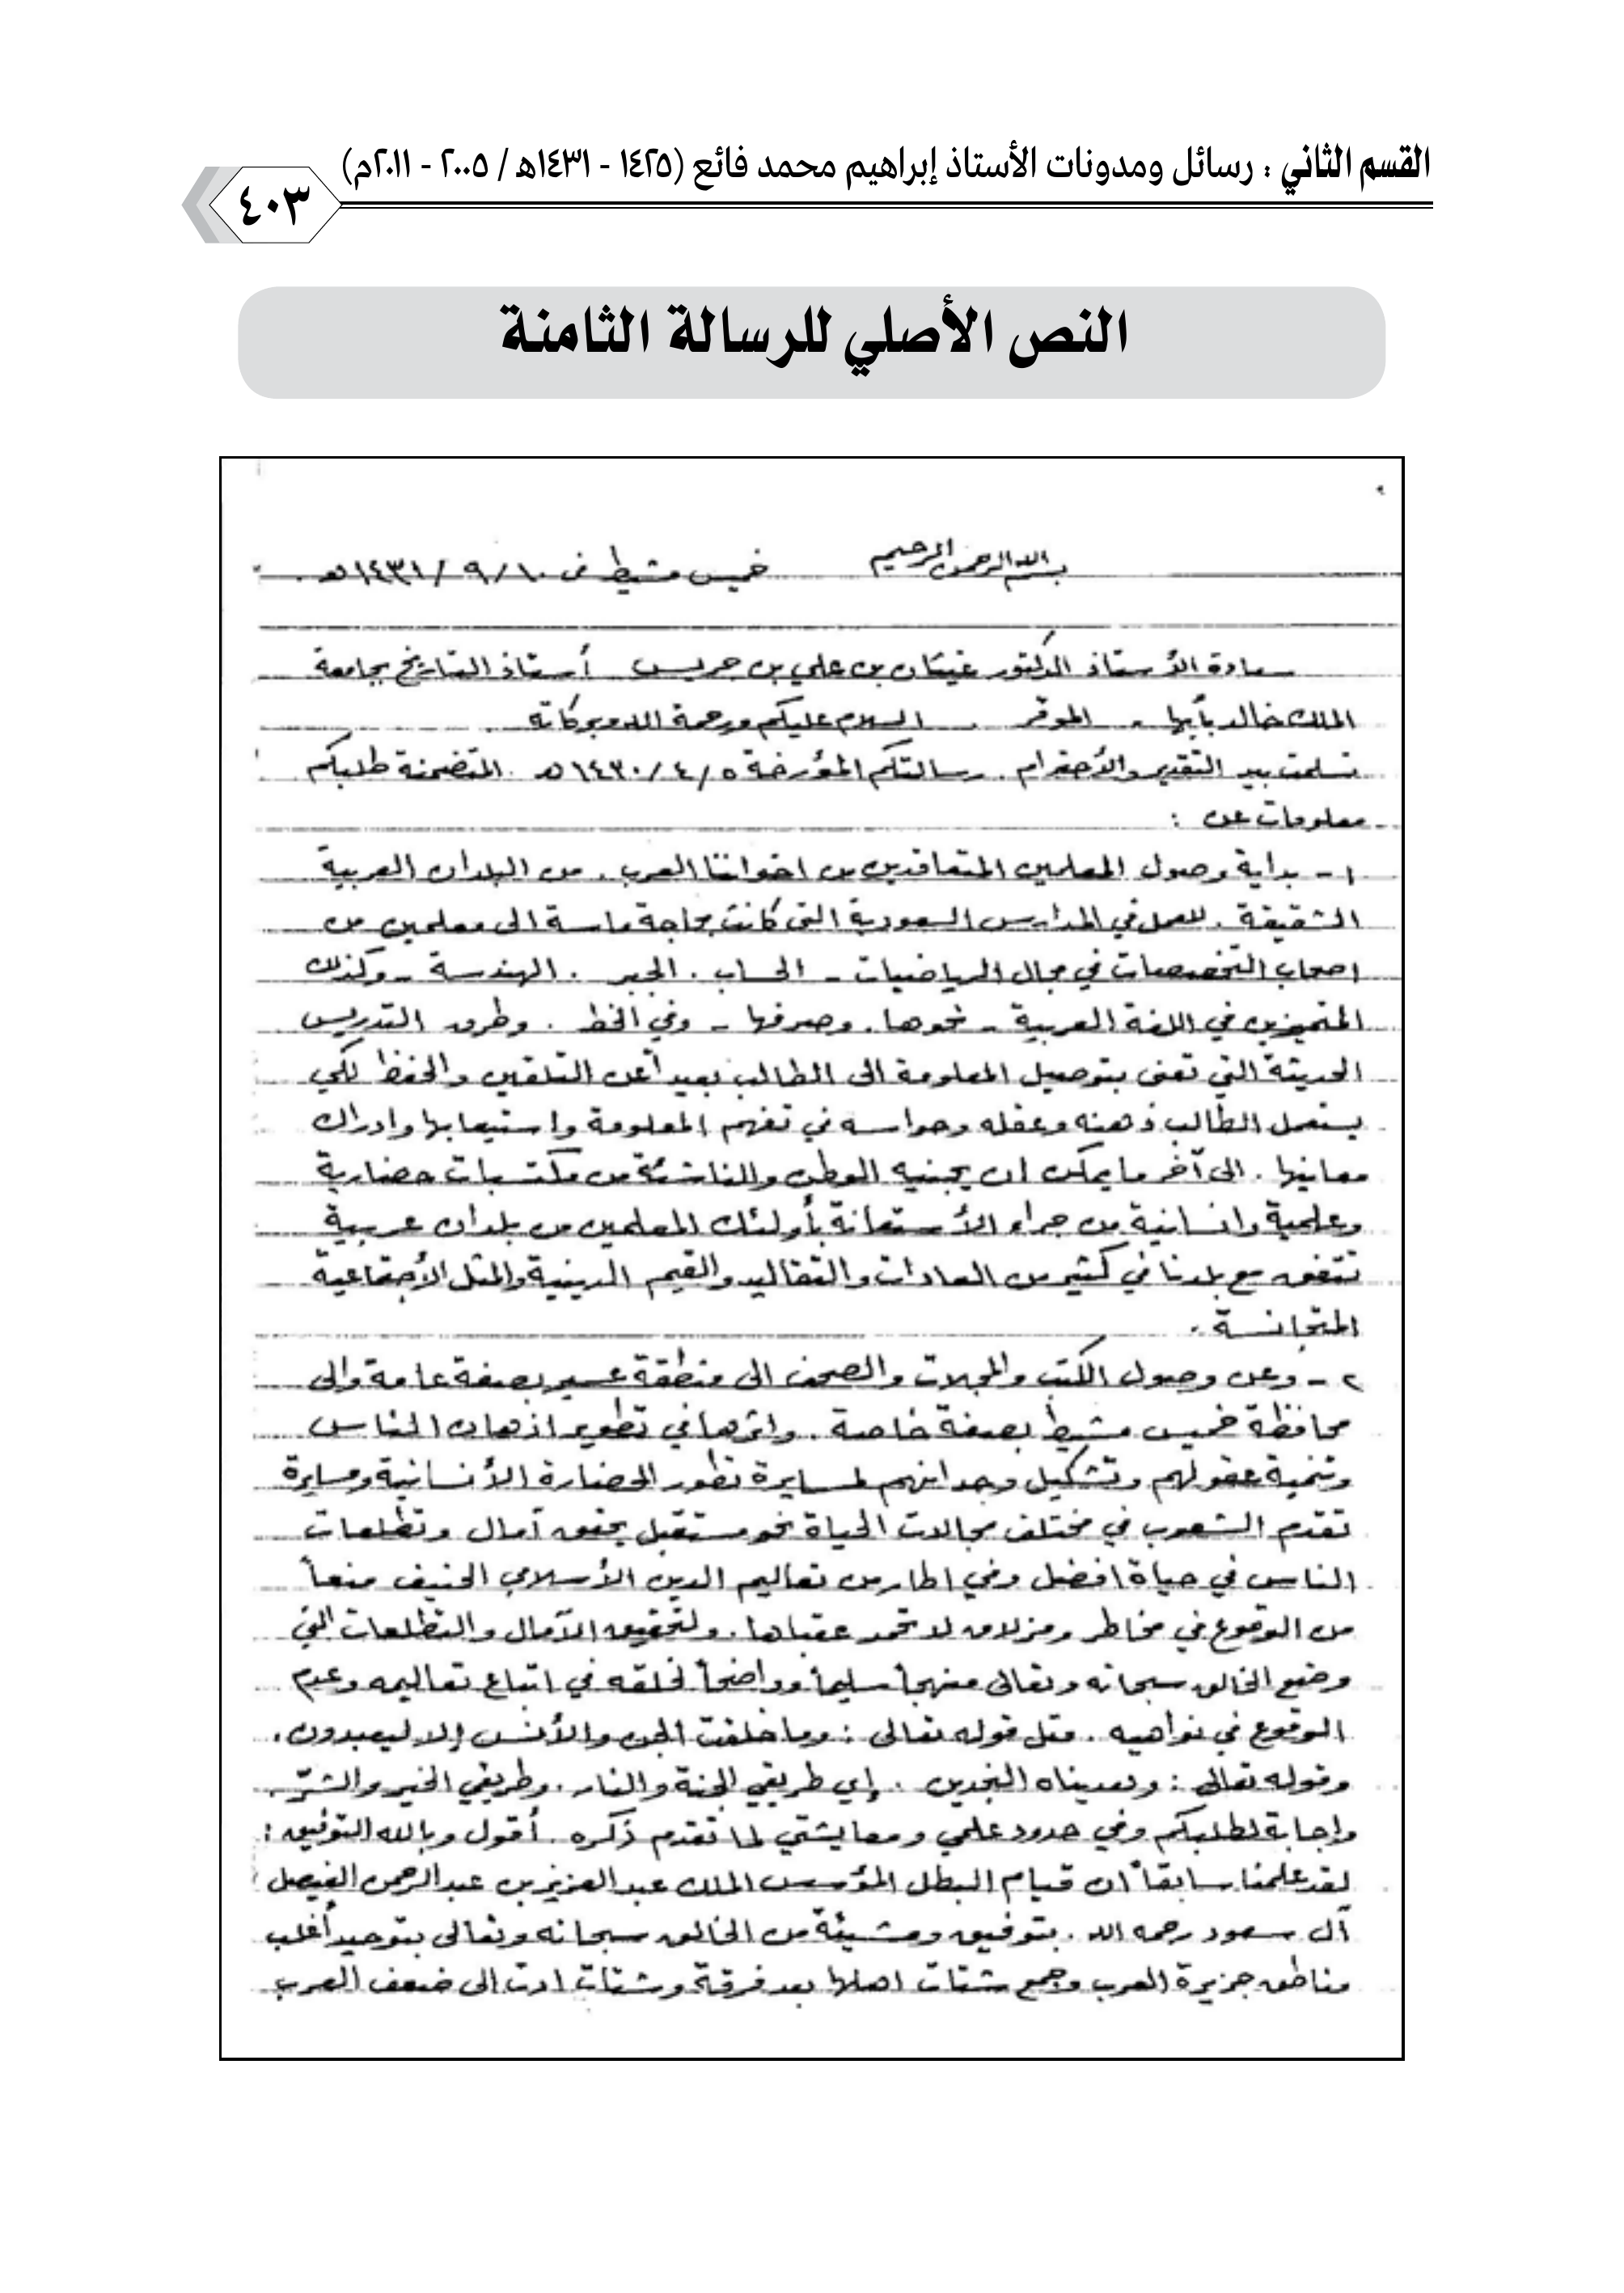 القسم الثاني : رسائل ومدونات الأستاذ إبراهيم محمد فائع (١٤٢٥ - ١٤٣١هـ / ٢٠٠٥ - ٢٠١١م)
٤٠٣
النص الأصلي للرسالة الثامنة
بسم الله الرحمن الرحيم خميس مشيط في ١٠/٩/١٤٣١هـ.
سعادة الأستاذ الدكتور غيثان بن علي بن جريس أستاذ التاريخ بجامعة
الملك خالد بأبها - الموقر . السلام عليكم ورحمة الله وبركاته
تسلمت بيد التقدير والأحترام . رسالتكم المؤرخة ٥/٤/١٤٣٠هـ المتضمنة طلبكم
معلومات عن :
١- بداية وصول المعلمين المتعاقدين من اخواننا العرب . من البلدان العربية
الشقيقة . للعمل في المدارس السعودية التي كانت بحاجة ماسة الى معلمين من
اصحاب التخصصات في مجال الرياضيات - الحساب . الجبر . الهندسة - وكذلك
المتميزين في اللغة العربية - نحوها . وصرفها - وفي الخط . وطرق التدريس
الحديثة التي تعنى بتوصيل المعلومة الى الطالب بعيداً عن التلقين والحفظ لكي
يستعمل الطالب ذهنه وعقله وحواسه في تفهم المعلومة واستيعابها وادراك
معانيها . الى آخر ما يمكن ان يجنيه الوطن والناشئة من مكتسبات حضارية
وعلمية وانسانية من جراء الأستعانة بأولئك المعلمين من بلدان عربية
تتفق مع بلدنا في كثير من العادات والتقاليد والقيم الدينية والمثل الأجتماعية
المتجانسة .
٢- وعن وصول الكتب والمجلات والصحف الى منطقة عسير بصفة عامة والى
محافظة خميس مشيط بصفة خاصة . واثرها في تطوير اذهان الناس
وتنمية عقولهم وتشكيل وجدانهم لمسايرة تطور الحضارة الأنسانية ومسايرة
تقدم الشعوب في مختلف مجالات الحياة نحو مستقبل يحقق آمال وتطلعات
الناس في حياة افضل وفي اطار من تعاليم الدين الأسلامي الحنيف منعاً
من الوقوع في مخاطر ومزلاق لا تحمد عقباها . ولتحقيق الآمال والتطلعات التي
وضع الخالق سبحانه وتعالى منهجاً سليماً وواضحاً لخلقه في اتباع تعاليمه وعدم
الوقوع في نواهيه . مثل قوله تعالى : وما خلقت الجن والأنس إلا ليعبدون .
وقوله تعالى : وهديناه النجدين . إي طريقي الجنة والنار . وطريقي الخير والشرّ .
وإجابة لطلبكم وفي حدود علمي ومعايشتي لما تقدم ذكره . أقول وبالله التوفيق :
لقد علمنا سابقاً ان قيام البطل المؤسس الملك عبدالعزيز بن عبدالرحمن الفيصل
آل سعود رحمه الله . بتوفيق ومشيئة من الخالق سبحانه وتعالى بتوحيد أغلب
مناطق جزيرة العرب وجمع شتات اهلها بعد فرقة وشتات ادت الى ضعف العرب